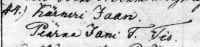 44.) Kärneri Jaan.
Pearna Jani T. Tio.